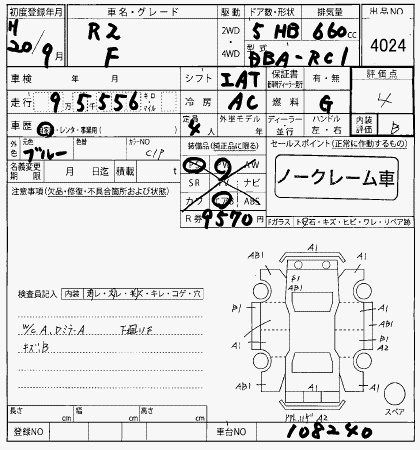 初度登録年月 車名・グレード 駆動 ドア数・形状 排気量 出品NO
H20/9月 R2 F 2WD・4WD 5 HB 660cc 4024
型式 DBA-RC1
車検 年 月 シフト IAT 保証書 有・無 評価点
走行 9万5千556 キロ マイル 冷房 AC 燃料 G 4
車歴 自家・レンタ・事業用( ) 定員 4人 外装モデル 年 ディーラー 並行 ハンドル 左・右 内装評価 B
外色 元色 ブルー 色替 カラーNO C1P 装備品(純正品に限る) セールスポイント(正常に作動するもの)
名義変更期限 月 日迄 積載 t ノークレーム車
PS PW AW
SR TV ナビ
カワ エアB ABS
注意事項(欠品・修復・不具合箇所および状態)
R券 9570円 Fガラス トビ石・キズ・ヒビ・ワレ・リペア跡
A1
AB1 AB1
B1 A1
A1 B1
A2
AB1 AB1
A1
A2
検査員記入 内装 ヨゴレ・スレ・キズ・キレ・コゲ・穴
W/C A, Dミラー A 下廻りF
キズB
スペア
長さ cm 幅 cm 高さ cm
登録NO 車台NO 108240